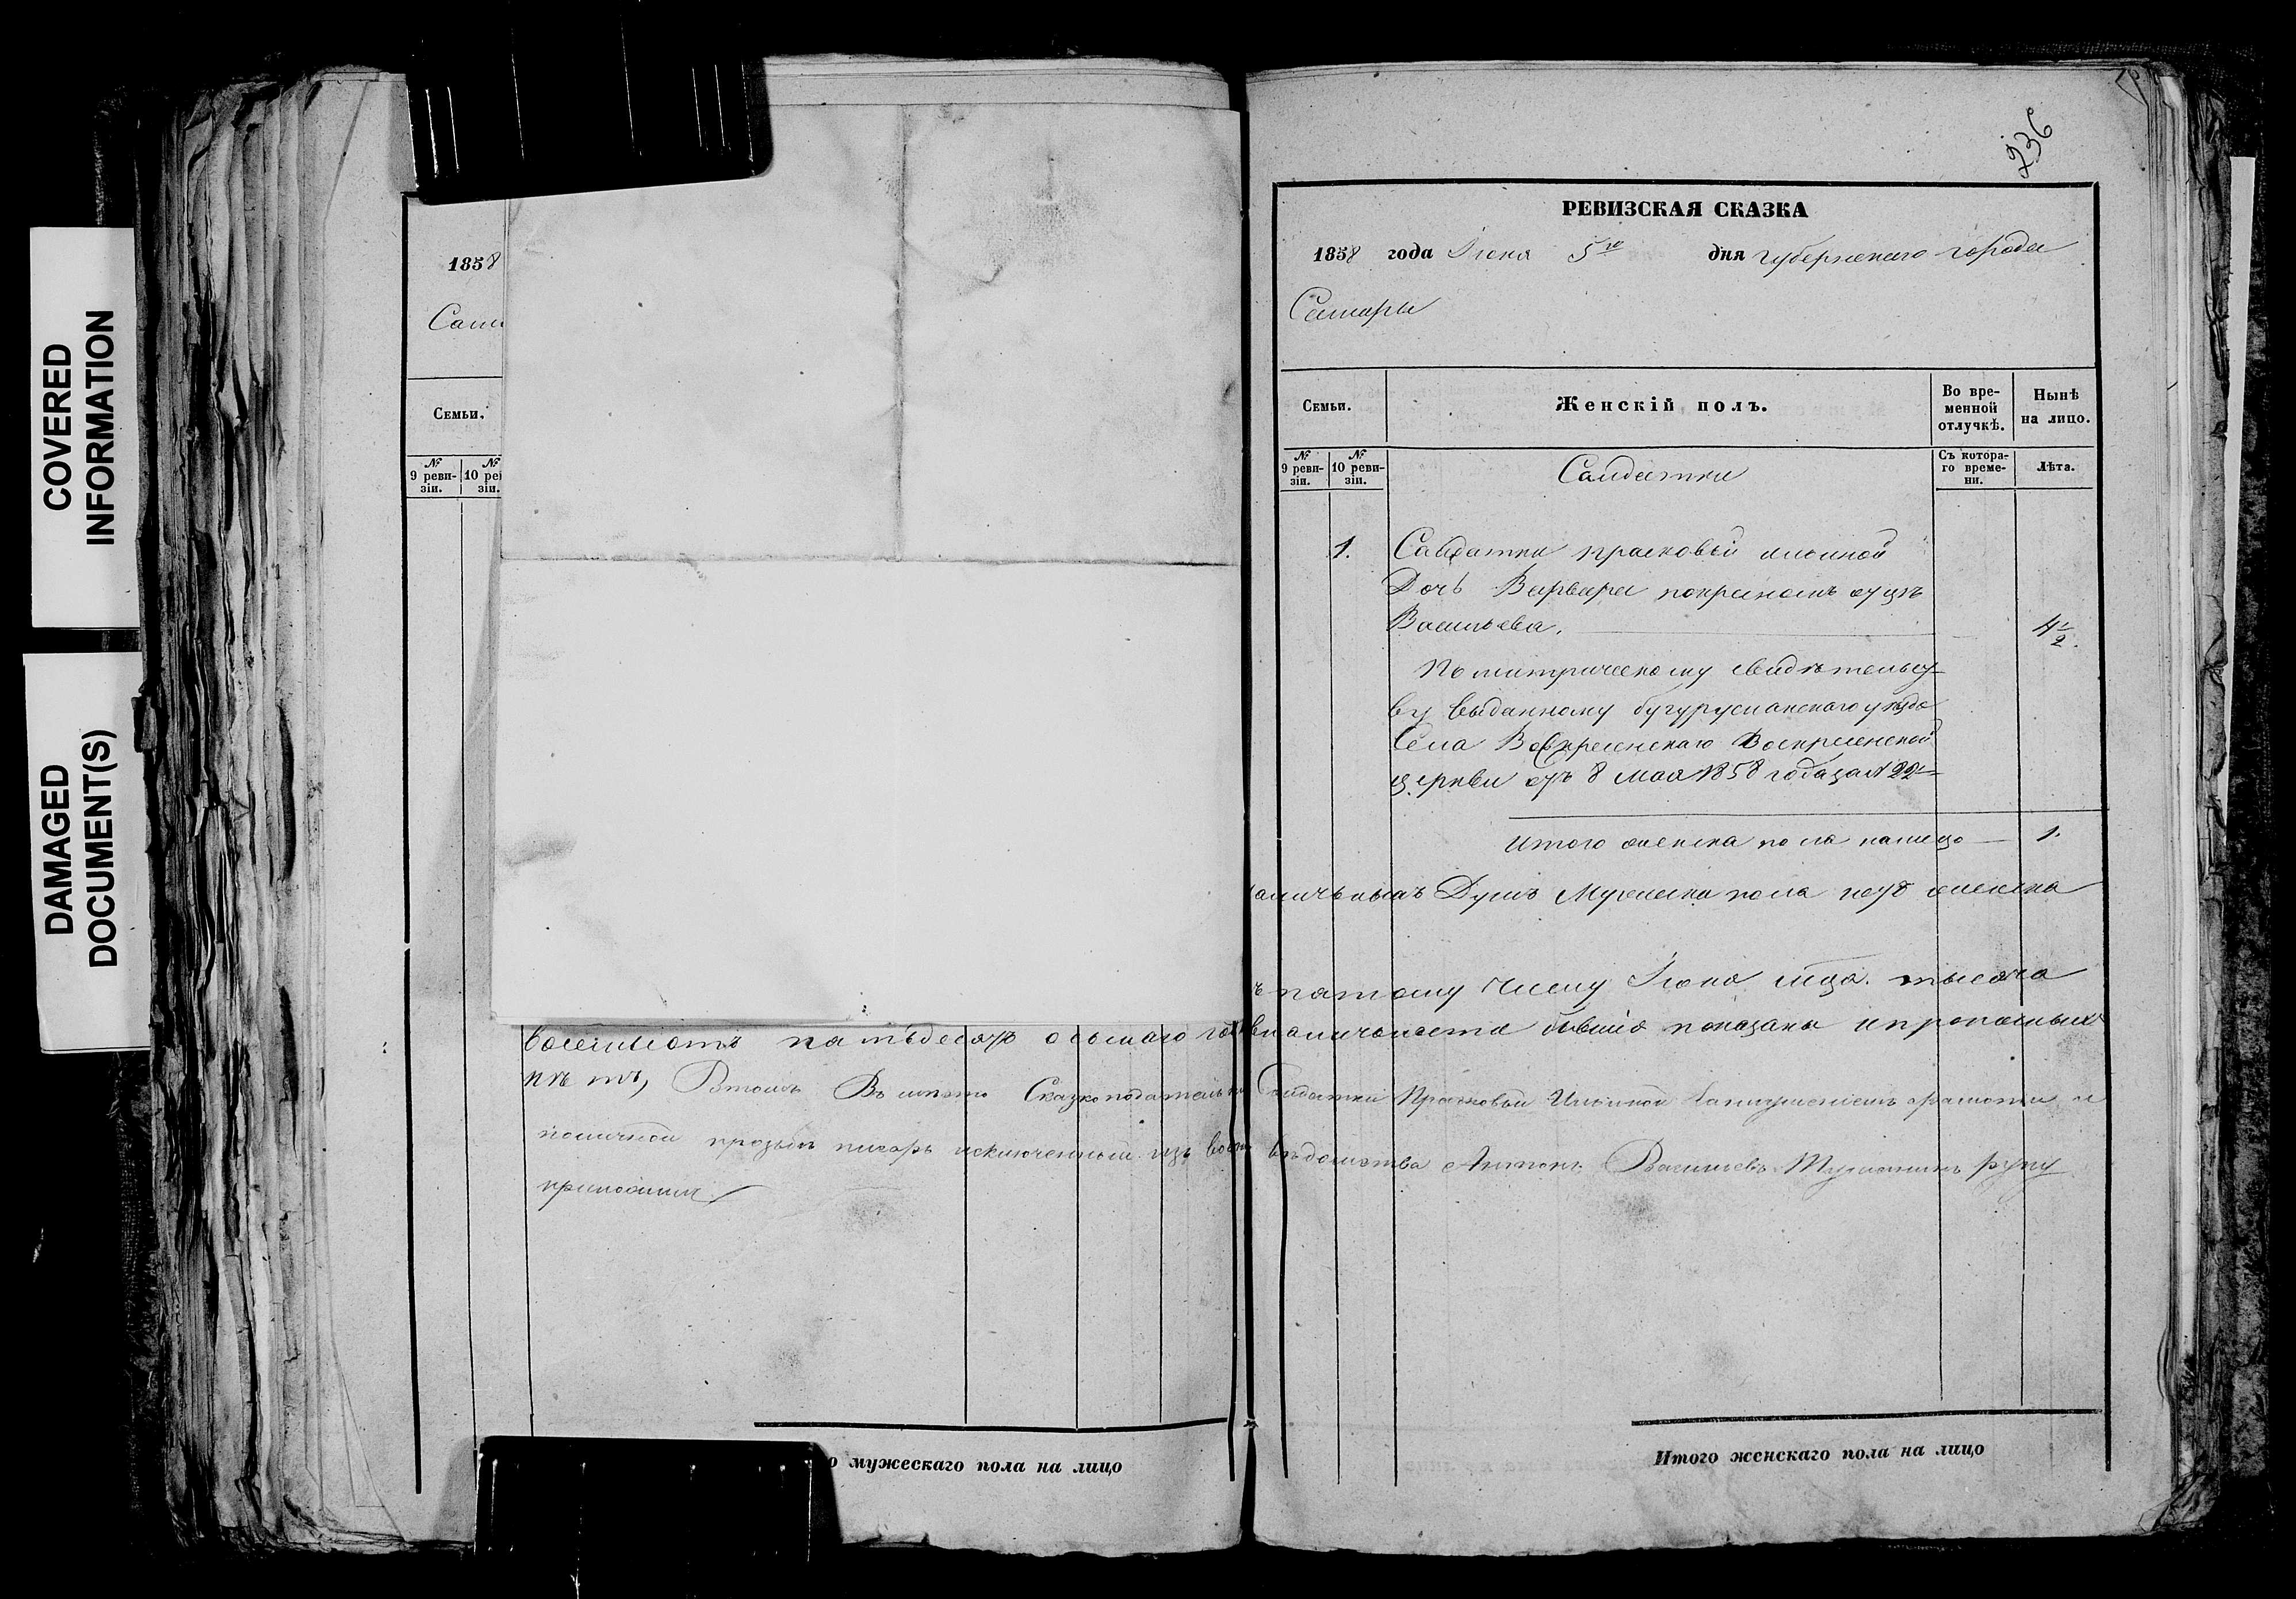 COVERED
INFORMATION
DAMAGED
DOCUMENT(S)
1858
Сам
Семьи.
№
9 реви-
зіи.
№
10 ре
зіи.
236
РЕВИЗСКАЯ СКАЗКА
1858 года Іюня 5го дня губернскаго города
Самары
Семьи.
Женскій полъ.
Во вре-
менной
отлучкѣ.
Нынѣ
на лицо.
№
9 реви-
зіи.
№
10 реви-
зіи.
Салдатки
Съ котора-
го време-
ни.
Лѣта.
1. Салдатки Прасковьи Ильиной
Дочь Варвара
Васильева. 4½
По митрическому свидѣтельст
ву выданному бугурусланскаго уѣзда
Села Воскресенскаго Воскресенской
церкви отъ 8 мая 1858 года за №
Итого женска пола налицо 1.
Душъ Мужеска пола нетъ женска
пятому числу Іюня мца. тысяча
восемьсотъ пятьдесятъ осьмаго бывшіе показаны и прописныхъ
нѣтъ, Втомъ Вмѣсто Сказкоподательни Салдатки Прасковьи Ильиной грамоты и
поличной прозьбѣ писарь исключенный изъ воен вѣдомства Антонъ Васильевъ руку
приложилъ
о мужескаго пола на лицо
Итого женскаго пола на лицо